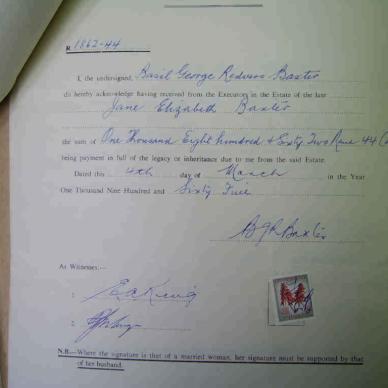 R 1862-44
I, the undersigned, Basil George Redvers Baxter
do hereby acknowledge having received from the Executors in the Estate of the late
Jane Elizabeth Baxter
the sum of One Thousand Eight hundred & Sixty Two Rand 44
being payment in full of the legacy or inheritance due to me from the said Estate.
Dated this 4th day of March in the Year
One Thousand Nine Hundred and Sixty Five
BGR Baxter
As Witnesses:—
1.
2.
N.B.—Where the signature is that of a married woman, her signature must be supported by that
of her husband.